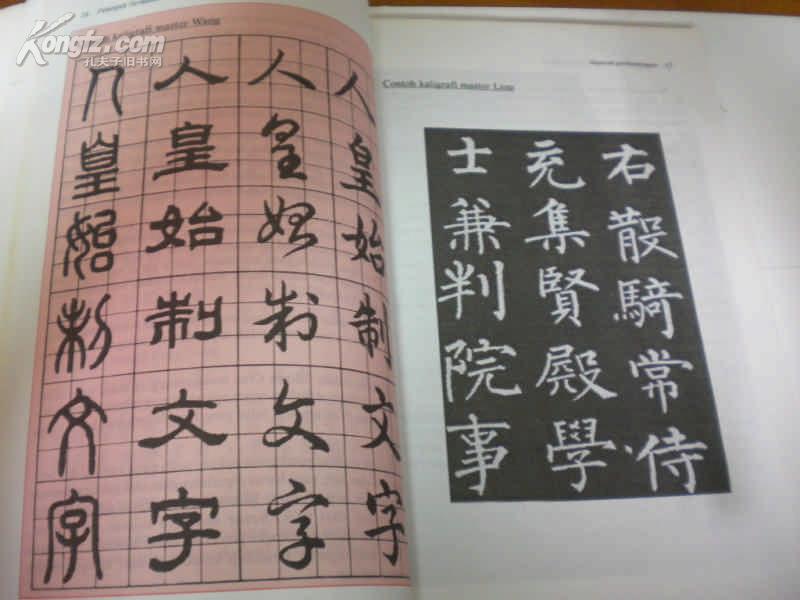 Kongfz.com
孔夫子旧书网
kaligrafi master Wang
人皇始制文字
人皇始制文字
人皇始制文字
人皇始制文字
Contoh kaligrafi master Liou
右散騎常侍
充集賢殿學
士兼判院事